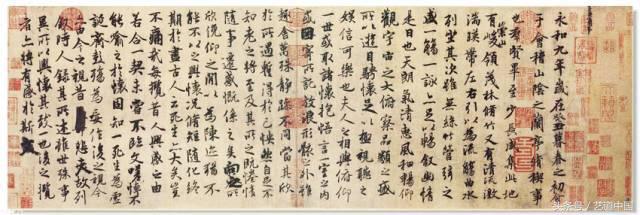 永和九年歲在癸丑暮春之初會
于會稽山陰之蘭亭脩稧事
也羣賢畢至少長咸集此地
有崇山峻領茂林脩竹又有清流激
湍暎帶左右引以為流觴曲水
列坐其次雖無絲竹管弦之
盛一觴一詠亦足以暢敘幽情
是日也天朗氣清惠風和暢仰
觀宇宙之大俯察品類之盛
所以遊目騁懷足以極視聽之
娛信可樂也夫人之相與俯仰
一世或取諸懷抱悟言一室之內
或因寄所託放浪形骸之外雖
趣舍萬殊靜躁不同當其欣
於所遇蹔得於己怏然自足不
知老之將至及其所之既惓情
隨事遷感慨係之矣向之所
欣俛仰之閒以為陳迹猶不
能不以之興懷況脩短隨化終
期於盡古人云死生亦大矣豈
不痛哉每攬昔人興感之由
若合一契未嘗不臨文嗟悼不
能喻之於懷固知一死生為虛
誕齊彭殤為妄作後之視今
亦由今之視昔悲夫故列
敘時人錄其所述雖世殊事
異所以興懷其致一也後之攬
者亦將有感於斯文
头条号 / 艺道中国